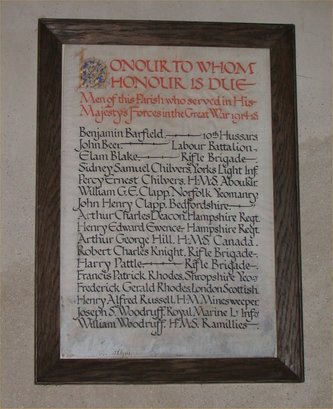 HONOUR TO WHOM
HONOUR IS DUE
Men of this Parish who served in His
Majesty's Forces in the Great War 1914-18
Benjamin Barfield 10th Hussars
John Beer Labour Battalion
Elam Blake Rifle Brigade
Sidney Samuel Chilvers, Yorks Light Inf
Percy Ernest Chilvers, H.M.S. Aboukir
William G.E. Clapp, Norfolk Yeomanry
John Henry Clapp, Bedfordshire
Arthur Charles Deacon, Hampshire Regt.
Henry Edward Ewence, Hampshire Regt.
Arthur George Hill, H.M.S. Canada.
Robert Charles Knight, Rifle Brigade
Harry Pattle Rifle Brigade
Francis Patrick Rhodes, Shropshire Yeo
Frederick Gerald Rhodes, London Scottish
Henry Alfred Russell, H.M. Minesweeper
Joseph S. Woodruff, Royal Marine Lt Inf
William Woodruff, H.M.S. Ramillies